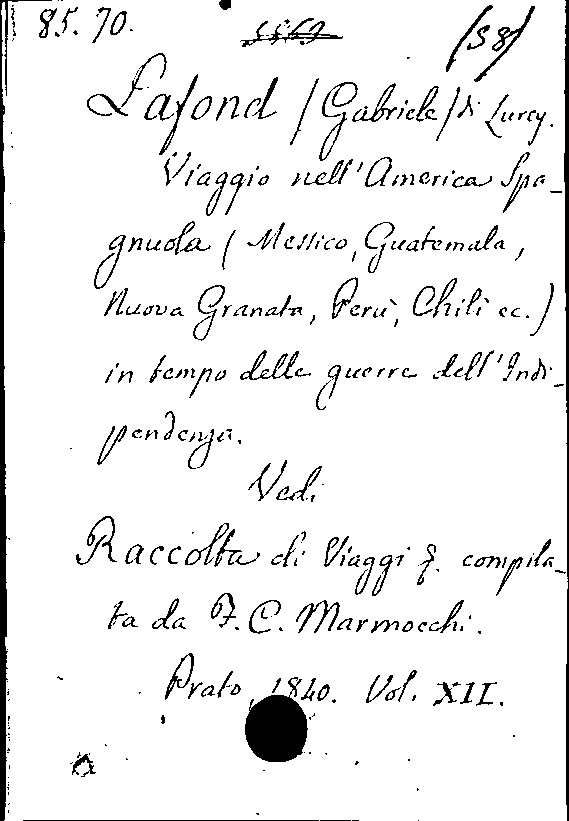 85.70. 5563 (S8)
Lafond (Gabriele) di Lurcy.
Viaggio nell'America Spa-
gnuola (Messico, Guatemala,
Nuova Granata, Perù, Chilì ec.)
in tempo delle guerre dell'Indi-
pendenza.
Vedi
Raccolta di Viaggi &. compila-
ta da F. C. Marmocchi.
Prato, 1840. Vol. XII.